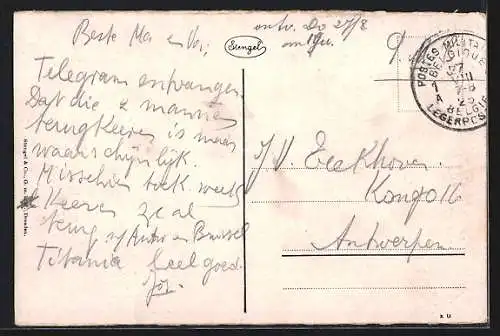 Beste Ma en Va,
ontv. Do 27/8
Stengel
Telegram ontvangen.
Dat die 2 mannen
terugkeeren is maar
waarschijnlijk.
Misschien
keeren ze al
terug Antw en Brussel
Titania heel goed.
Stengel & Co., G. m. b. H., Dresden.
POSTES MILITAIRES
BELGIQUE
7
VIII
7-8
1 A
23
BELGIE
LEGERPOST
J/V. Eeckhoven
Kongo 16
Antwerpen.